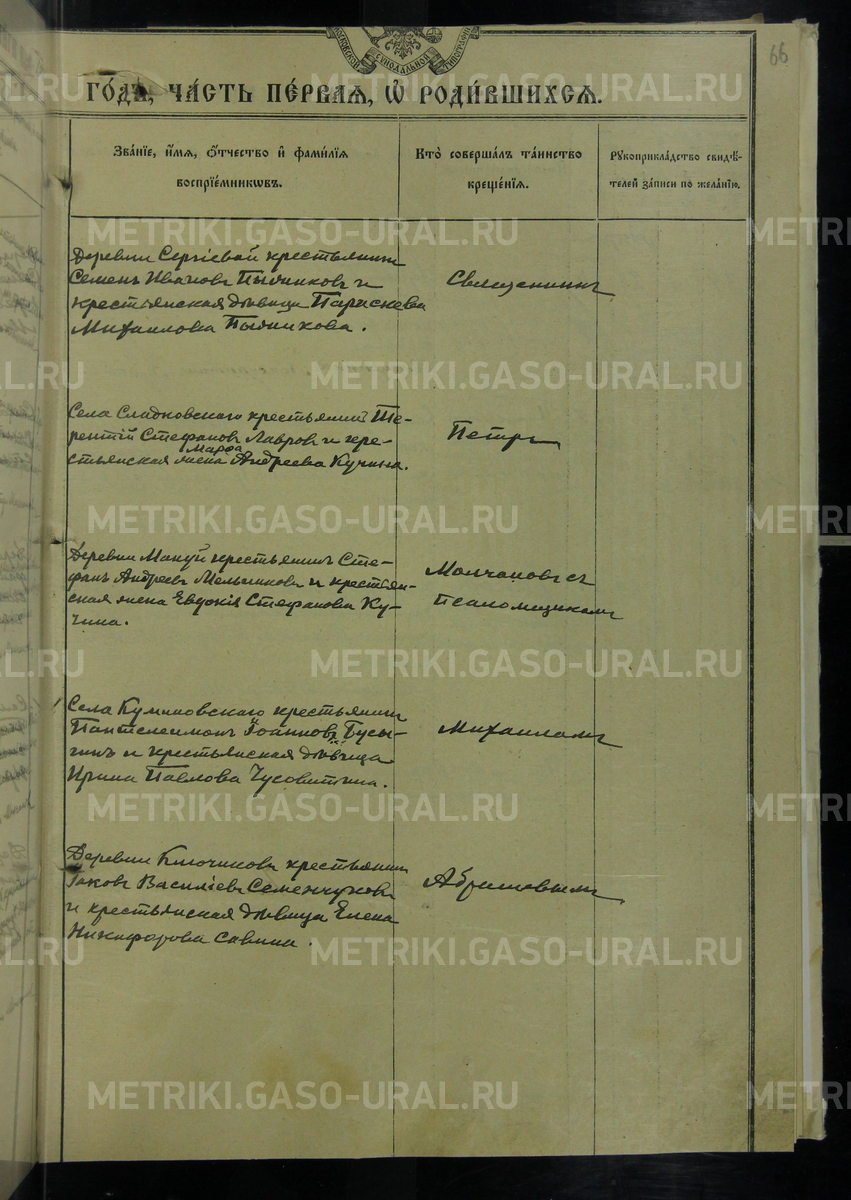 МОСКОВСКОЙ СѴНОДАЛЬНОЙ ТИПОГРАФІИ
66
ГО́ДЪ, ЧА́СТЬ ПЕ́РВАЯ, Ѡ҆ РОДИ́ВШИХСЯ.
Зва́нїе, и҆́мя, ѻ҆́тчество и҆ фами́лїя
воспрїе́мникѡвъ.
Кто̀ соверша́лъ та́инство
креще́нїя.
Рꙋкоприкла́дство свидѣ́-
телей за́писи по жела́нїю.
Деревни Сергіевой крестьянин
Семенъ Ивановъ Пьянковъ и
крестьянская дѣвица Параскева
Михаилова Пьянкова.
Священникъ
Села Сладковскаго крестьянинъ Те-
рентій Стефановъ Лавровъ и кре-
стьянская жена Марфа Андреева Кучина.
Петръ
Деревни Макуй крестьянинъ Сте-
фанъ Андреевъ Мельниковъ и крестьян-
ская жена Евдокія Стефанова Ку-
чина.
Молчановъ съ
Псаломщикомъ
Села Куминовскаго крестьянинъ
Пантелеимонъ Іоанновъ Бусы-
гинъ и крестьянская дѣвица
Ирина Павлова Чусовитина.
Михаиломъ
Деревни Ключикова крестьянин
Іаковъ Василіевъ Семенчуковъ
и крестьянская дѣвица Елена
Никифорова Савина.
Абрамовымъ
METRIKI.GASO-URAL.RU